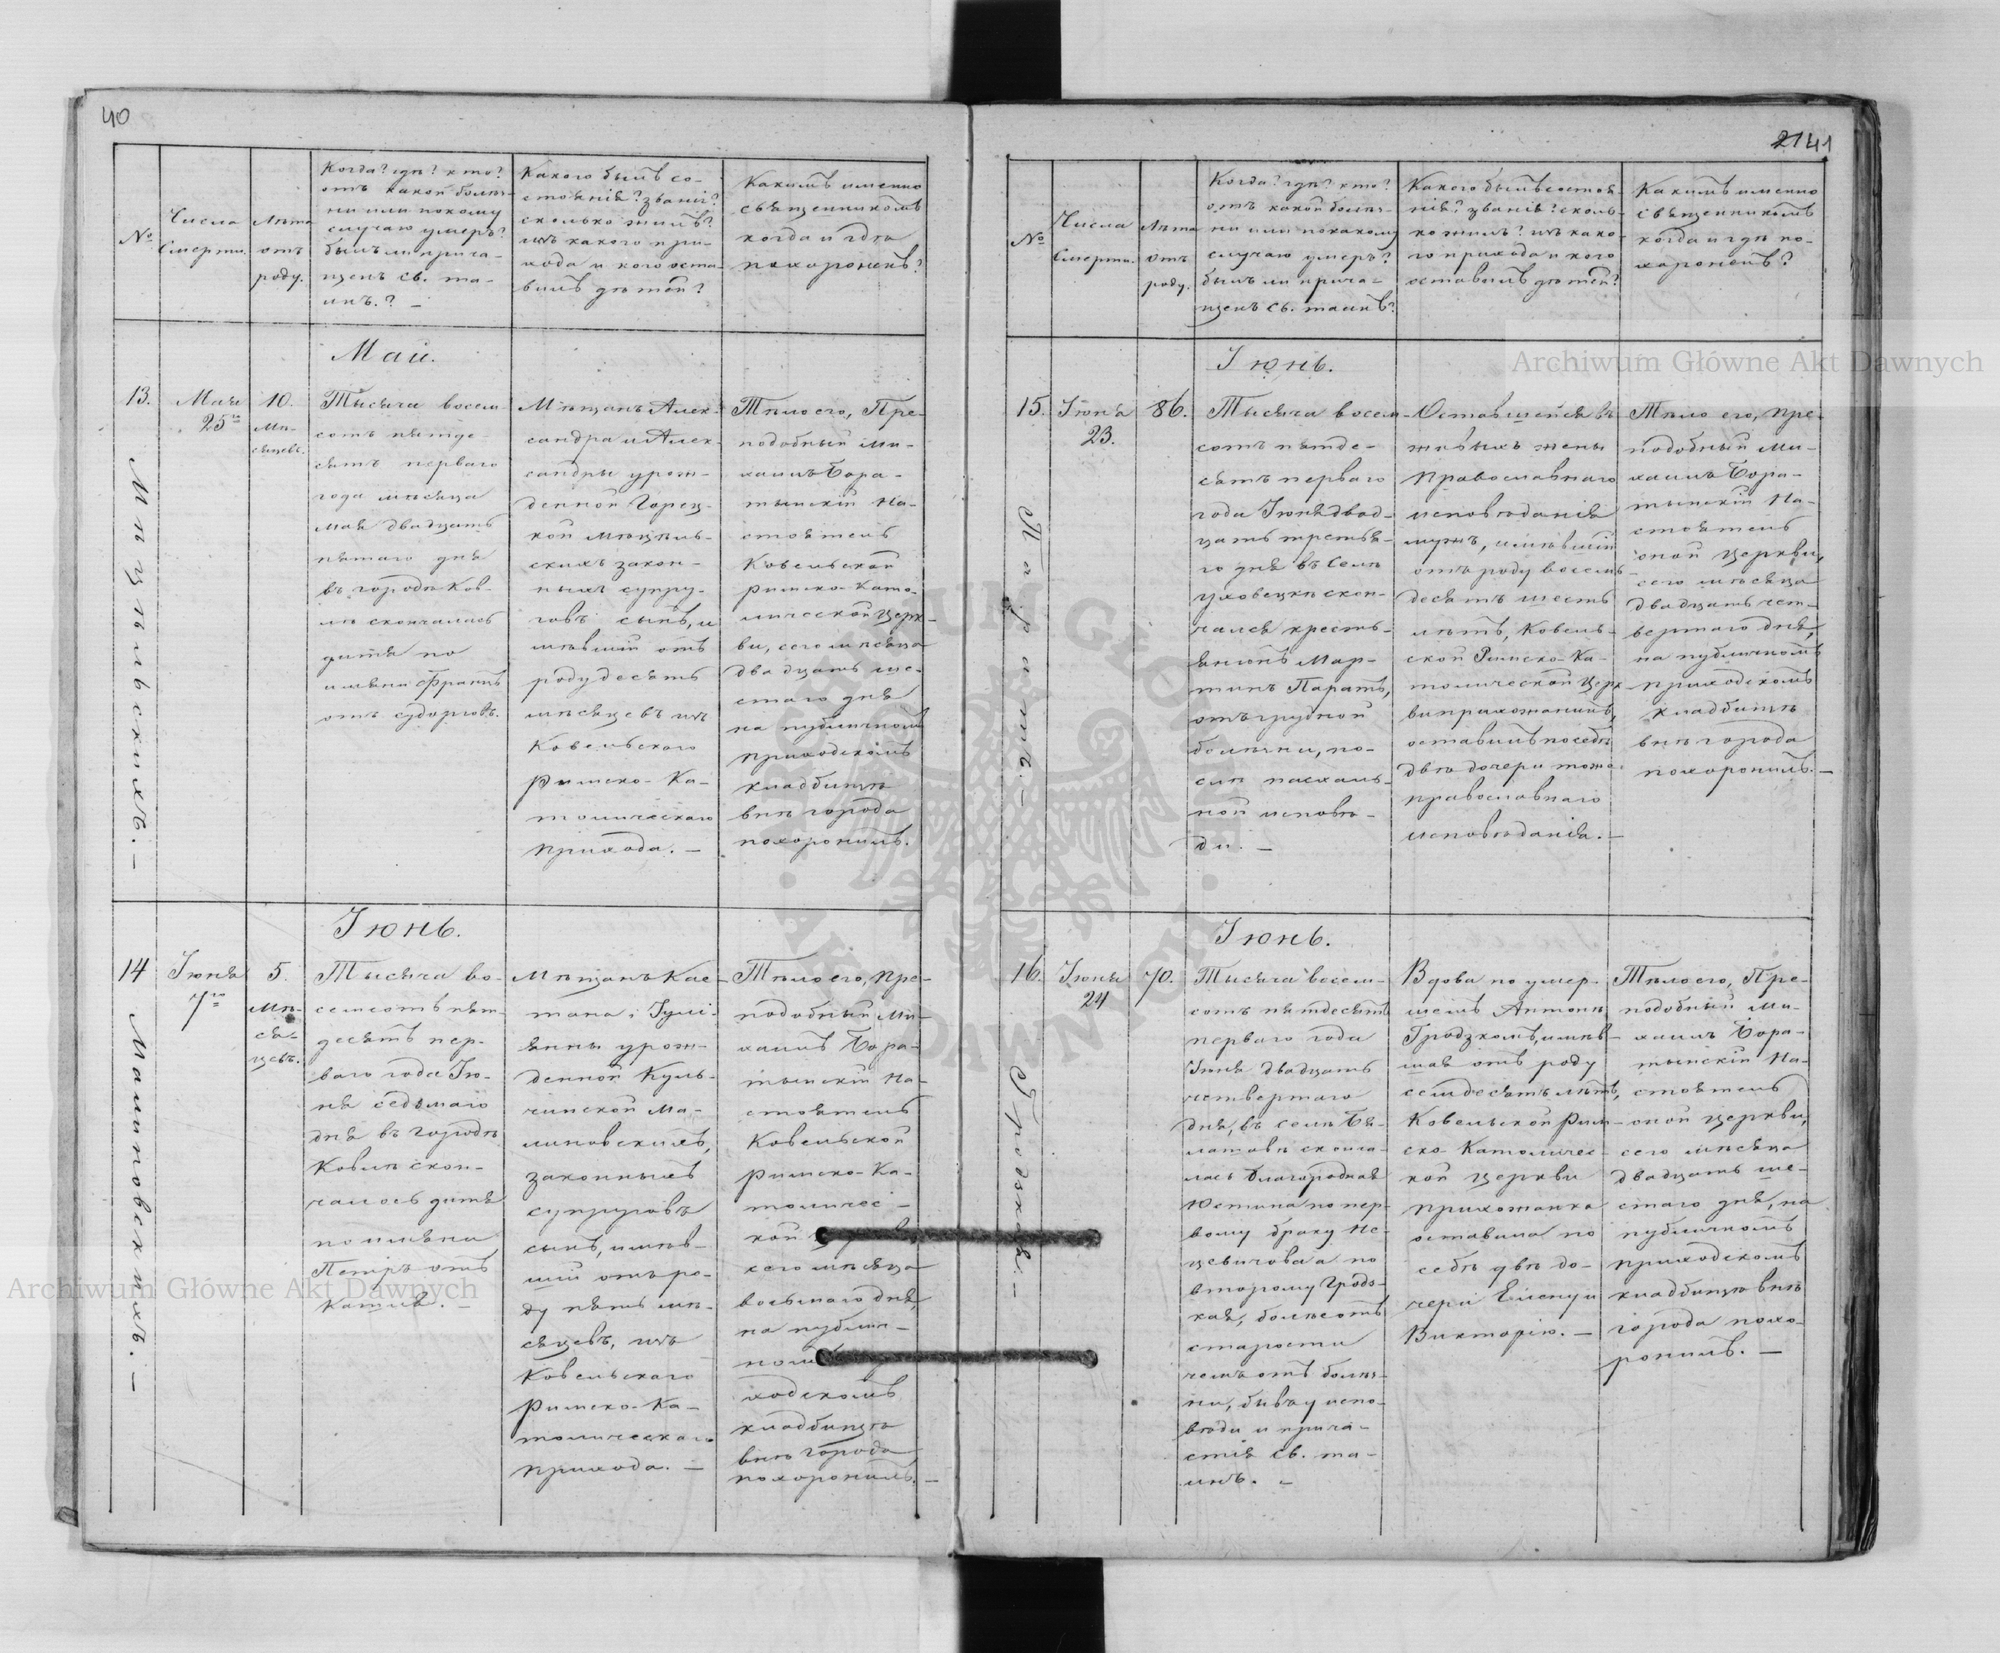 40
№
Числа
Смерти.
Лѣта
отъ
роду.
Когда? гдѣ? кто?
отъ какой болѣз-
ни или по какому
случаю умеръ?
былъ ли прича-
щенъ св. та-
инъ.? —
Какого былъ со-
стоянія? званія?
сколько жилъ?
изъ какого при-
хода и кого оста-
вилъ дѣтей?
Какимъ именно
священникомъ
когда и гдѣ
похороненъ?
Май.
13.
Мая
25го
10.
Мѣ-
сяцевъ.
Мѣцѣльскихъ. —
Тысяча восем-
сотъ пятьде-
сятъ перваго
года мѣсяца
мая двадцать
пятаго дня
въ городѣ Ков-
лѣ скончалось
дитя по
имяни Францъ
отъ судорогъ.
Мѣщанъ Алек-
сандра и Алек-
сандры урож-
денной Горец-
кой Мѣцель-
скихъ закон-
ныхъ супру-
говъ сынъ, и
мѣвшій отъ
роду десять
мѣсяцевъ изъ
Ковельскаго
Римско-Ка-
толическаго
прихода. —
Тѣло его, Пре-
подобный Ми-
хаилъ Бора-
тынскій На-
стоятель
Ковельской
Римско-Като-
лической Церк-
ви, сего мѣсяца
двадцать ше-
стаго дня
на публичномъ
приходскомъ
кладбищѣ
внѣ города
похоронилъ.
Іюнь.
14
Іюня
7го
5.
Мѣ-
ся-
цевъ.
Малиновскихъ. —
Тысяча во-
семсотъ пят-
десятъ пер-
ваго года Ію-
ня седьмаго
дня въ городѣ
Ковлѣ скон-
чалось дитя
по имяни
Петръ отъ
кашля. —
Мѣщанъ Кае-
тана, Гулі-
янны урож-
денной Куль-
чинской Ма-
линовскихъ,
законныхъ
супруговъ
сынъ, имѣв-
шій отъ ро-
ду пять мѣ-
сяцевъ, изъ
Ковельскаго
Римско-Ка-
толическаго
прихода. —
Тѣло его, Пре-
подобный Ми-
хаилъ Бора-
тынскій На-
стоятель
Ковельской
Римско-Ка-
толичес-
кой
сего мѣсяца
восьмаго дня,
на публич-
номъ
ходскомъ
кладбищѣ
внѣ города
похоронилъ. —
41
№
Числа
Смерти.
Лѣта
отъ
роду.
Когда? гдѣ? кто?
отъ какой болѣз-
ни или по какому
случаю умеръ?
былъ ли прича-
щенъ св. таинъ?
Какого былъ состоя
нія? званія? сколь-
ко жилъ? изъ како-
го прихода и кого
оставилъ дѣтей?
Какимъ именно
священникомъ
когда и гдѣ по-
хороненъ?
Archiwum Główne Akt Dawnych
Іюнь.
15.
Іюня
23.
86.
Паратъ. —
Тысяча восем-
сотъ пятьде-
сятъ перваго
года Іюня двад-
цать третья-
го дня въ Селѣ
скон-
чался кресть-
янинъ Мар-
тинъ Паратъ,
отъ грудной
болѣзни, по-
слѣ пасхаль-
ной исповѣ-
ди. —
Оставшейся въ
живыхъ жены
Православнаго
исповѣданія
мужъ, имѣвшій
отъ роду восемь
десятъ шесть
лѣтъ, Ковель-
ской Римско-Ка-
толической Церк
ви прихожанинъ,
оставилъ по себѣ
двѣ дочери тоже
православнаго
исповѣданія. —
Тѣло его, Пре-
подобный Ми-
хаилъ Бора-
тынскій На-
стоятель
оной Церкви,
сего мѣсяца
двадцать чет-
вертаго дня,
на публичномъ
приходскомъ
кладбищѣ
внѣ города
похоронилъ. —
Іюнь.
16.
Іюня
24
70.
Гродзкая. —
Тысяча восем-
сотъ пятдесятъ
перваго года
Іюня двадцать
четвертаго
дня, въ селѣ Бѣ-
лашовѣ сконча-
лась благородная
Юстина по пер-
вому браку Не-
цевичова а по
второму Гродз-
кая, болѣе отъ
старости
чемъ отъ болѣз-
ни, бывъ у испо-
вѣди и прича-
стія св. та-
инъ. —
Вдова по умер-
шемъ Антонѣ
Гродзкомъ, имѣв-
шая отъ роду
семдесятъ лѣтъ,
Ковельской Рим-
ско Католичес-
кой Церкви
прихожанка
оставила по
себѣ двѣ до-
чери Елену и
Викторію. —
Тѣло его, Пре-
подобный Ми-
хаилъ Бора-
тынскій На-
стоятель
оной церкви,
сего мѣсяца
двадцать ше-
стаго дня, на
публичномъ
приходскомъ
кладбищѣ внѣ
города похо-
ронилъ. —
Archiwum Główne Akt Dawnych